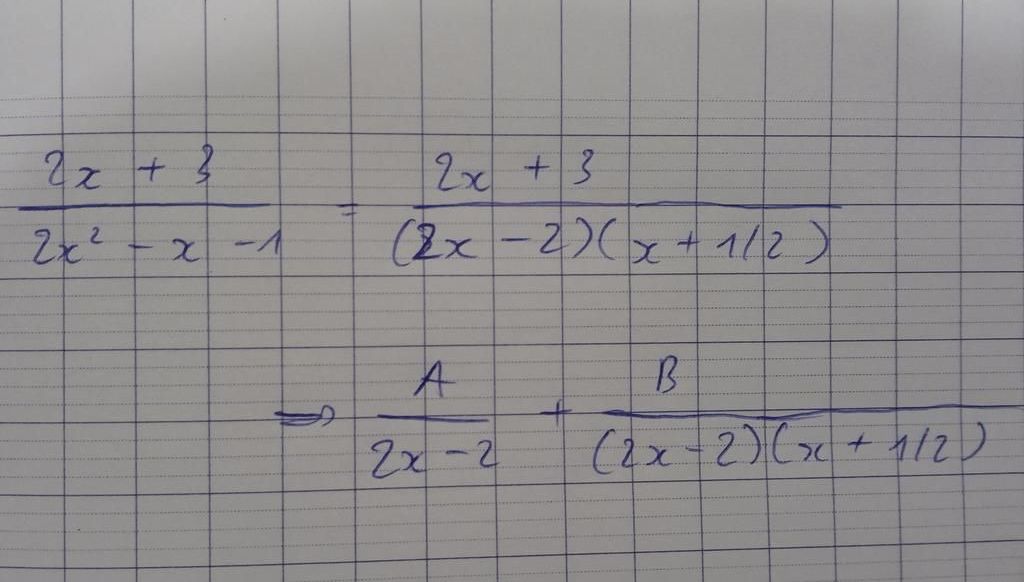 2x + 3 / 2x² - x - 1 = 2x + 3 / (2x - 2)(x + 1/2)
⇒ A / 2x - 2 + B / (2x - 2)(x + 1/2)